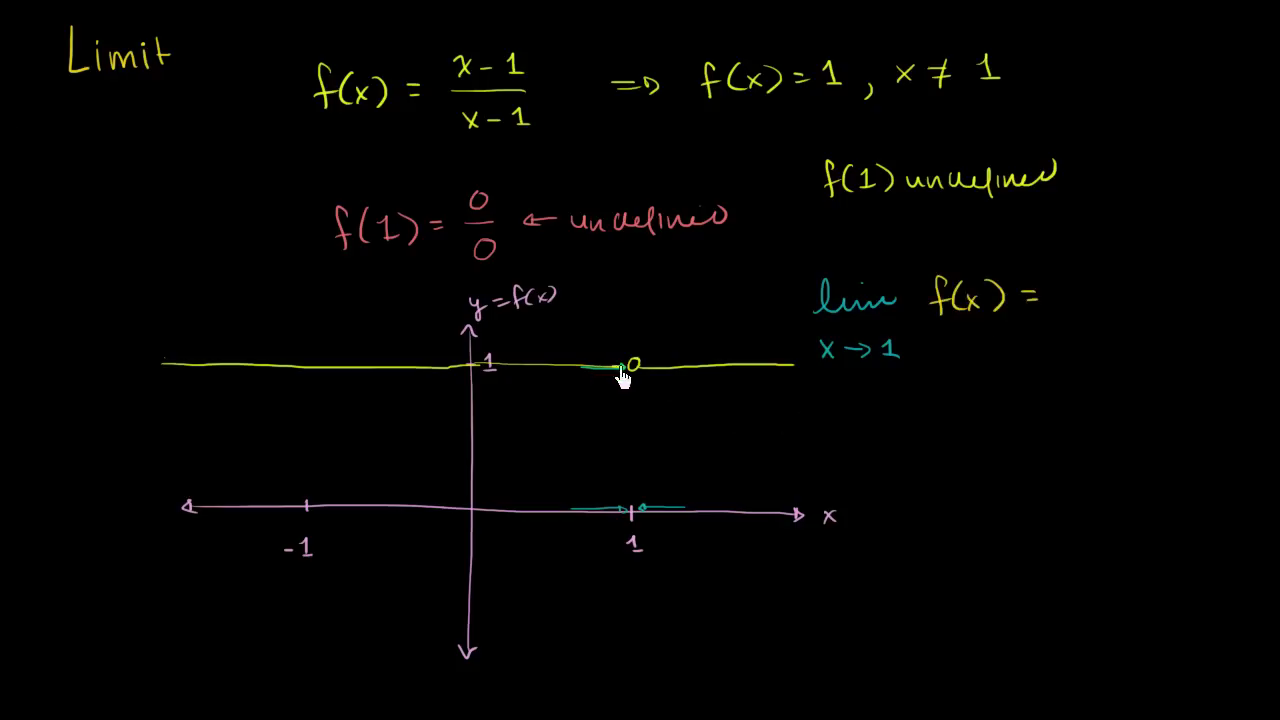 Limit
f(x) = x-1 / x-1 => f(x) = 1, x ≠ 1
f(1) undefined
f(1) = 0/0 ← undefined
y = f(x)
lim f(x) =
x → 1
1
x
-1
1